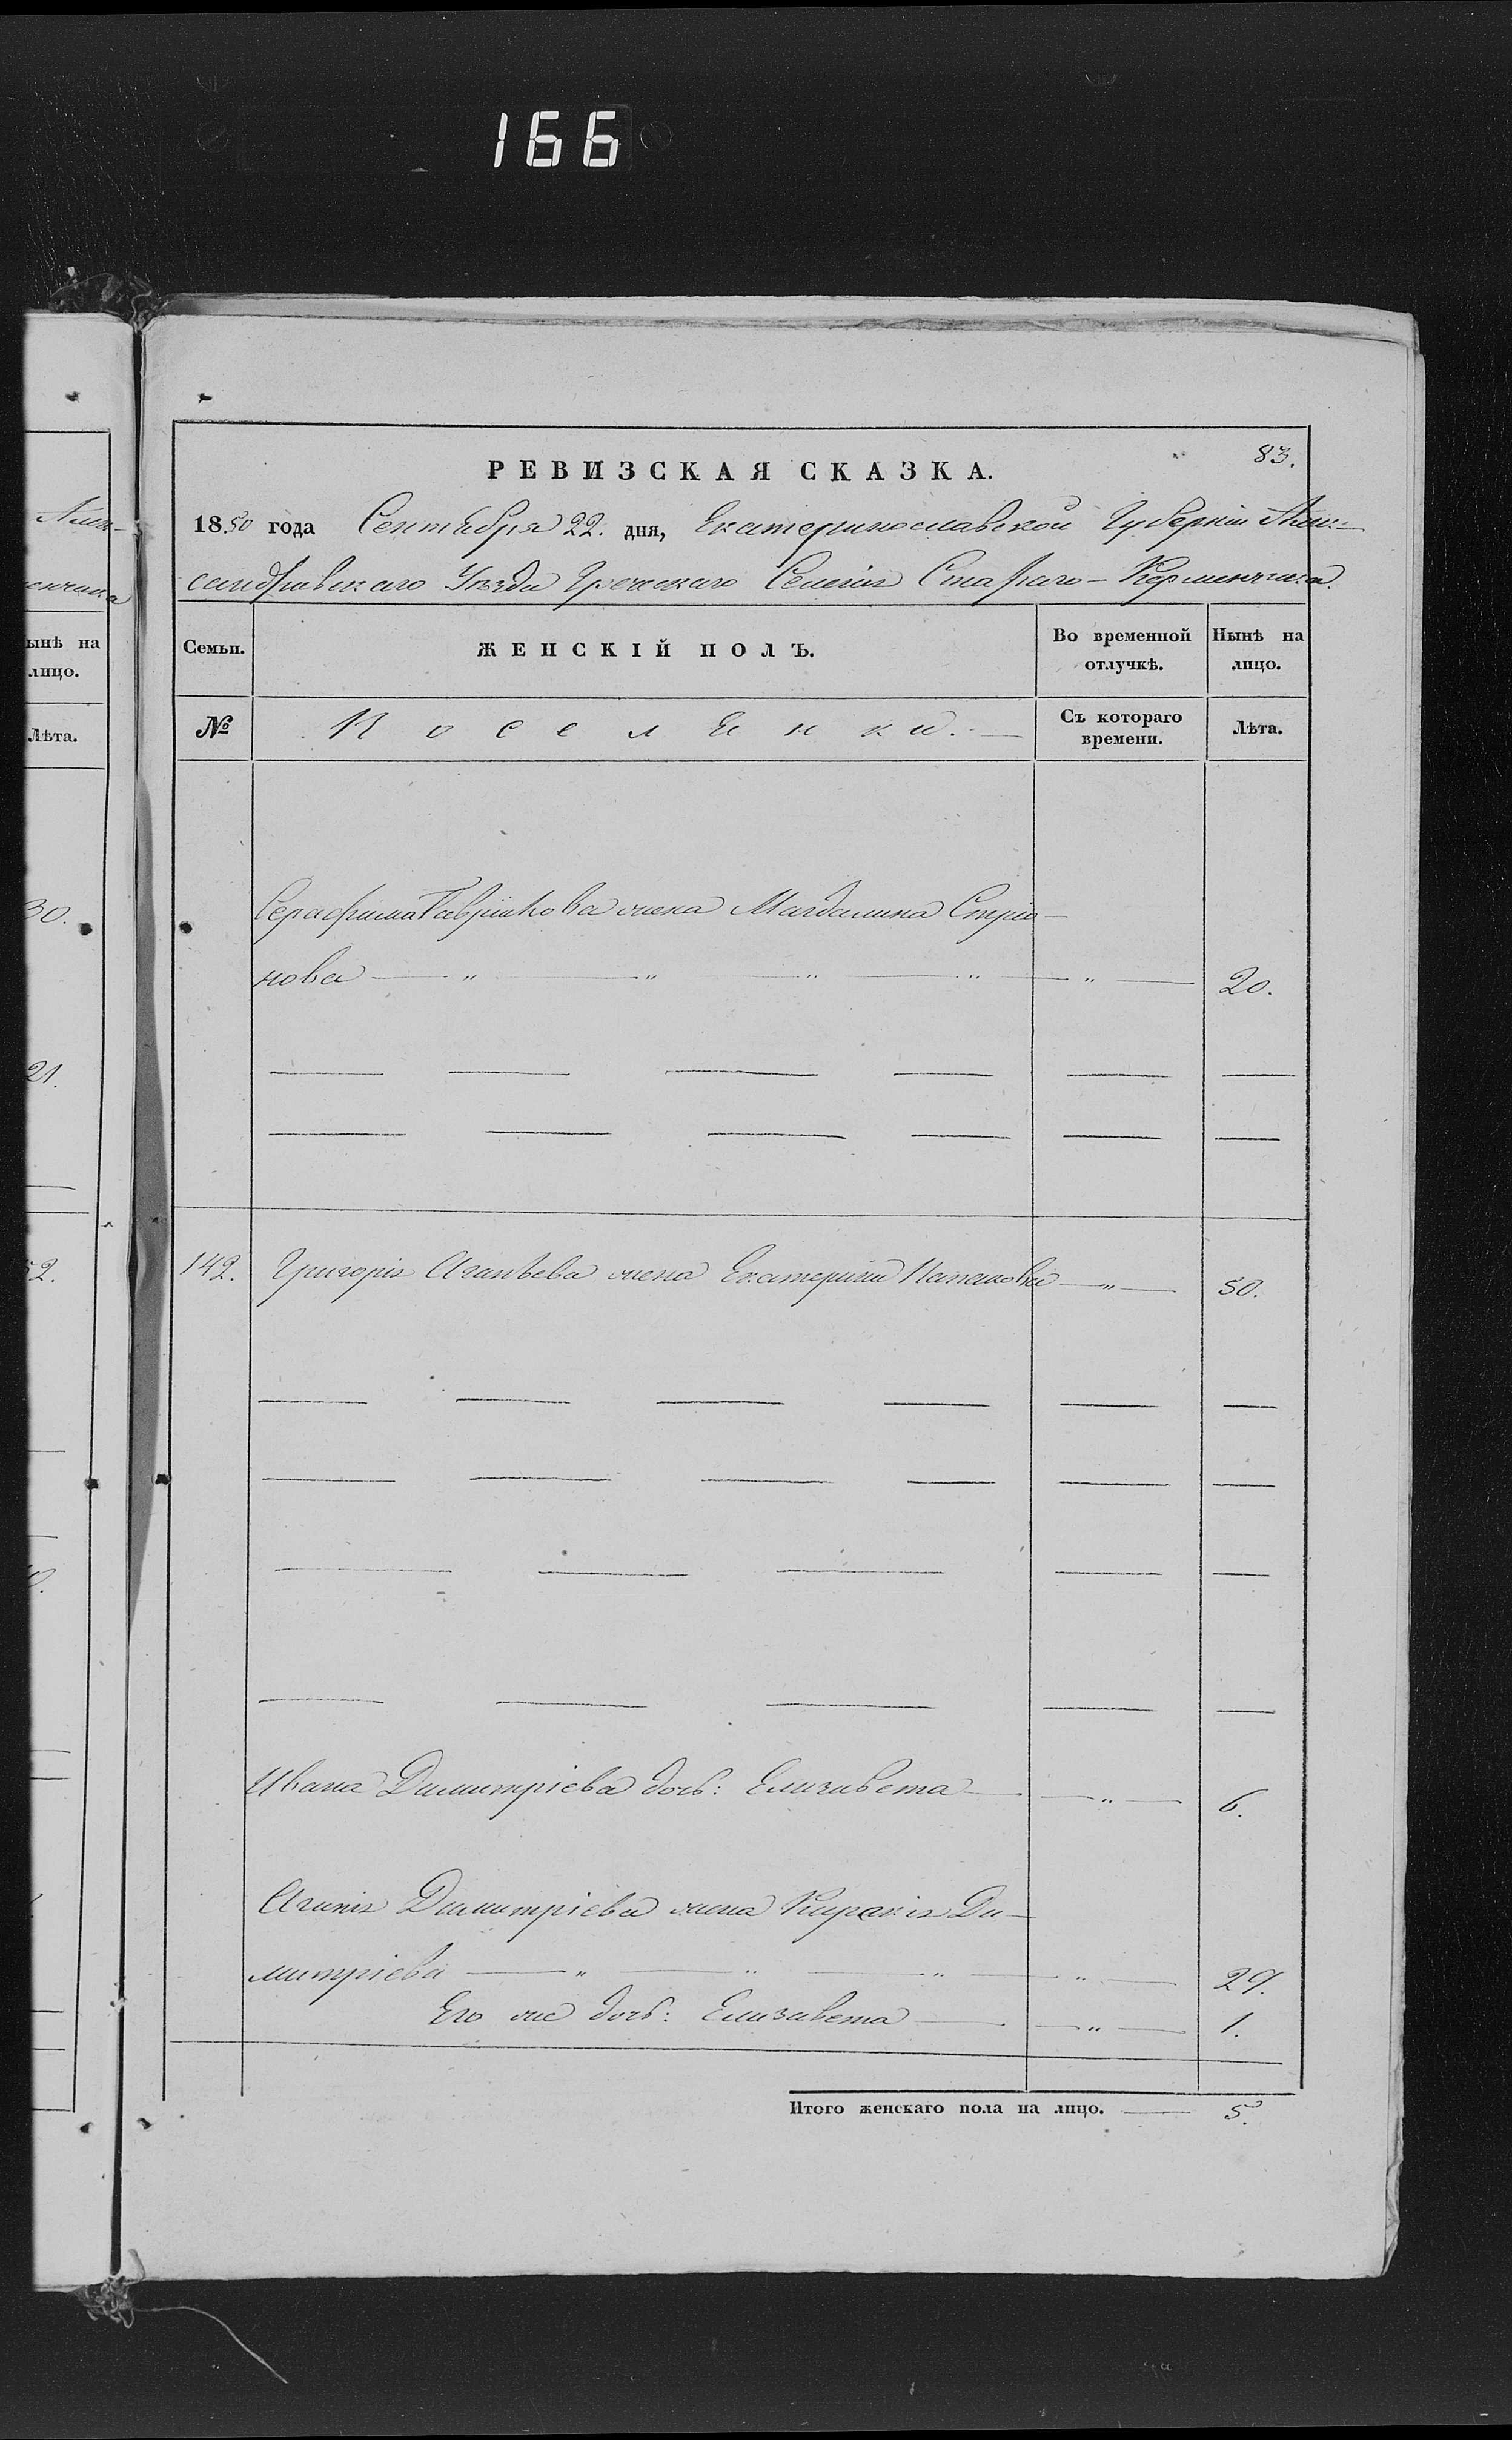 166
83.
РЕВИЗСКАЯ СКАЗКА.
1850 года Сентября 22. дня, Екатеринославской Губерніи Алек-
сандровскаго Уѣзда Греческаго Селенія Стараго-Керменчика.
Семьи.
ЖЕНСКІЙ ПОЛЪ.
Во временной отлучкѣ.
Нынѣ на лицо.
№
Поселенки.
Съ котораго времени.
Лѣта.
Серафима Гаврилова жена Магдалина
нова — " — " — " — " — " — 20.
142. Григорія жена Екатерина — " — 50.
Ивана Димитріева дочь: Елизавета — " — 6.
Агапія Димитріева жена Киракія Ди-
митріева — " — " — " — " — 29.
Его же дочь: Елизавета — " — 1.
Итого женскаго пола на лицо. — 5.
ынѣ на
лицо.
Лѣта.
30.
21.